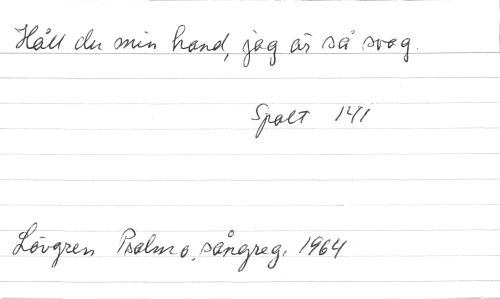 Håll du min hand, jag är så svag.
Spalt 141
Lövgren Psalm o. sångreg. 1964